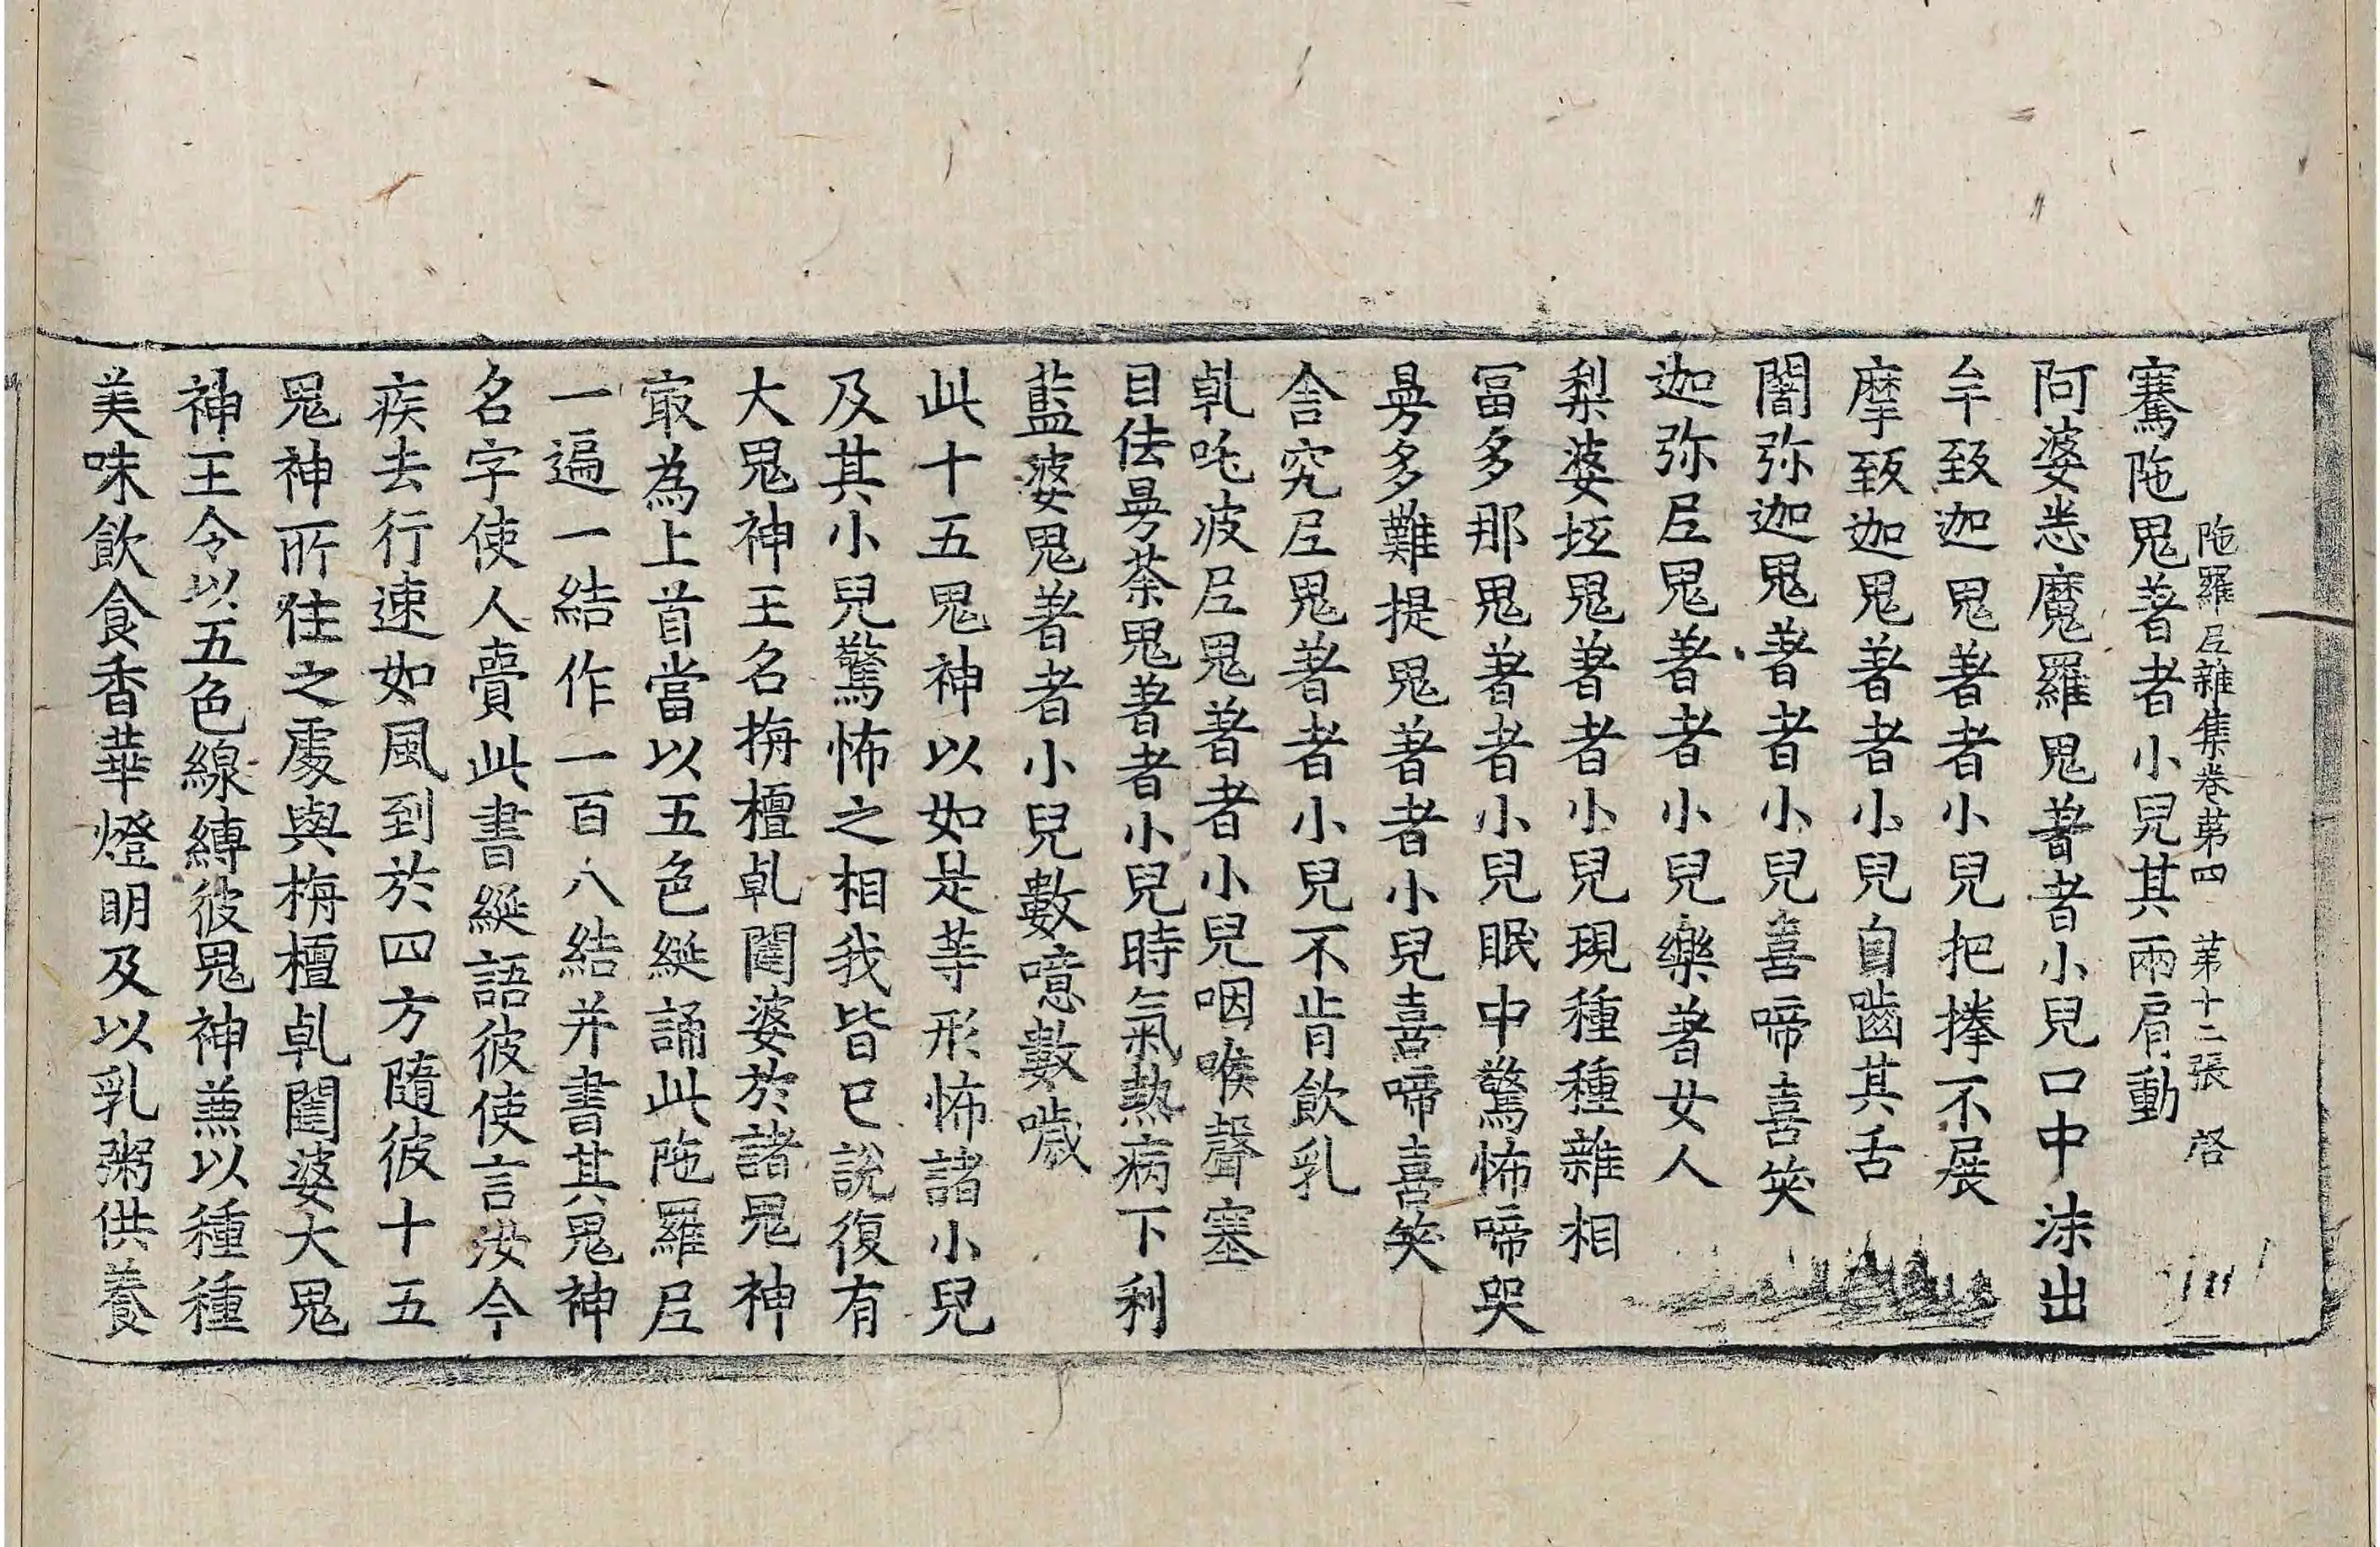 陁羅尼雜集卷第四　第十二張　啓
騫陁鬼著者小兒其兩肩動
阿婆悉魔羅鬼著者小兒口中沫出
牟致迦鬼著者小兒把捲不展
摩致迦鬼著者小兒自齧其舌
闍弥迦鬼著者小兒喜啼喜笑
迦弥尼鬼著者小兒樂著女人
梨婆坻鬼著者小兒現種種雜相
冨多那鬼著者小兒眠中驚怖啼哭
曼多難提鬼著者小兒喜啼喜笑
舍究尼鬼著者小兒不肯飲乳
乹吒波尼鬼著者小兒咽喉聲塞
目佉曼荼鬼著者小兒時氣熱病下利
藍婆鬼著者小兒數噫數噦
此十五鬼神以如是等形怖諸小兒
及其小兒驚怖之相我皆已說復有
大鬼神王名栴檀乹闥婆於諸鬼神
㝡為上首當以五色綖誦此陁羅尼
一遍一結作一百八結并書其鬼神
名字使人賫此書綖語彼使言汝今
疾去行速如風到於四方隨彼十五
鬼神所住之處與栴檀乹闥婆大鬼
神王令以五色線縛彼鬼神兼以種種
美味飲食香華燈明及以乳粥供養